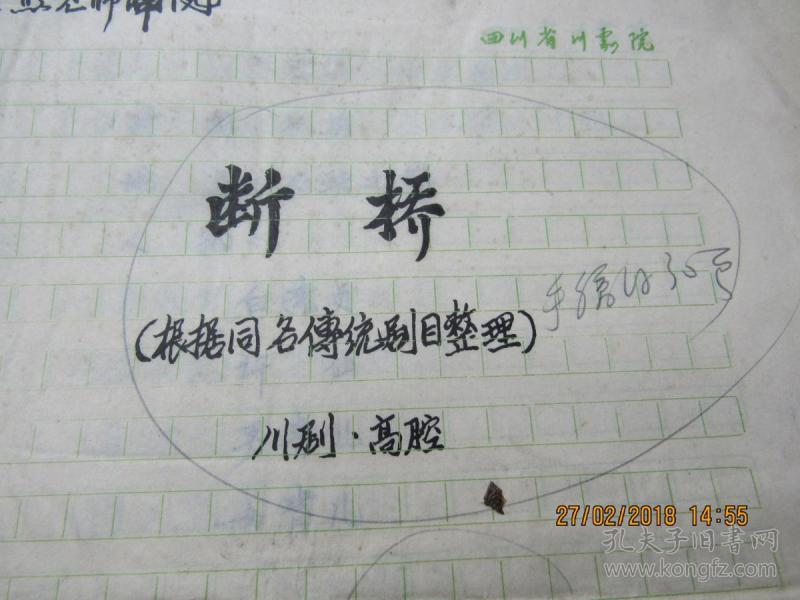 老师审阅
四川省川剧院
断桥
(根据同名傳统剧目整理)
手稿计35页
川剧·高腔
27/02/2018 14:55
孔夫子旧书网
www.kongfz.com